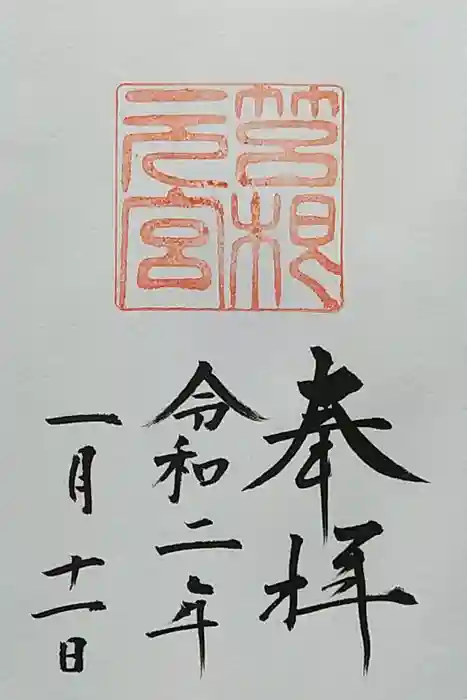 筥根
元宮
奉拝
令和二年
一月十一日